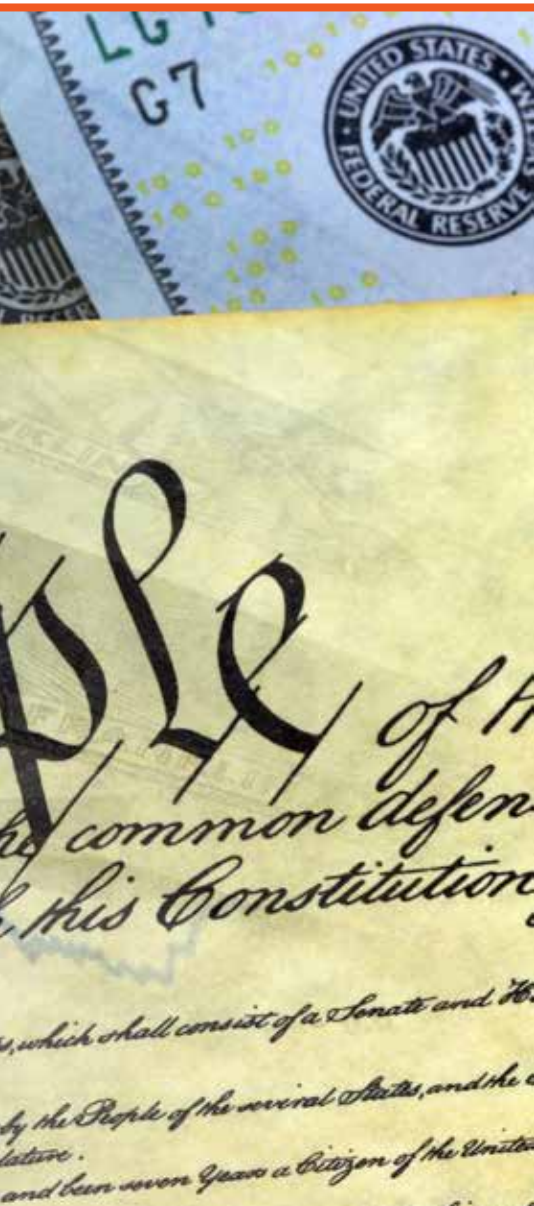 G7
100
100
100
100
UNITED STATES
FEDERAL RESERVE
ple of
common defen
this Constitution,
which shall consist of a Senate and H
by the People of the several States, and the
lature.
and been seven Years a Citizen of the United